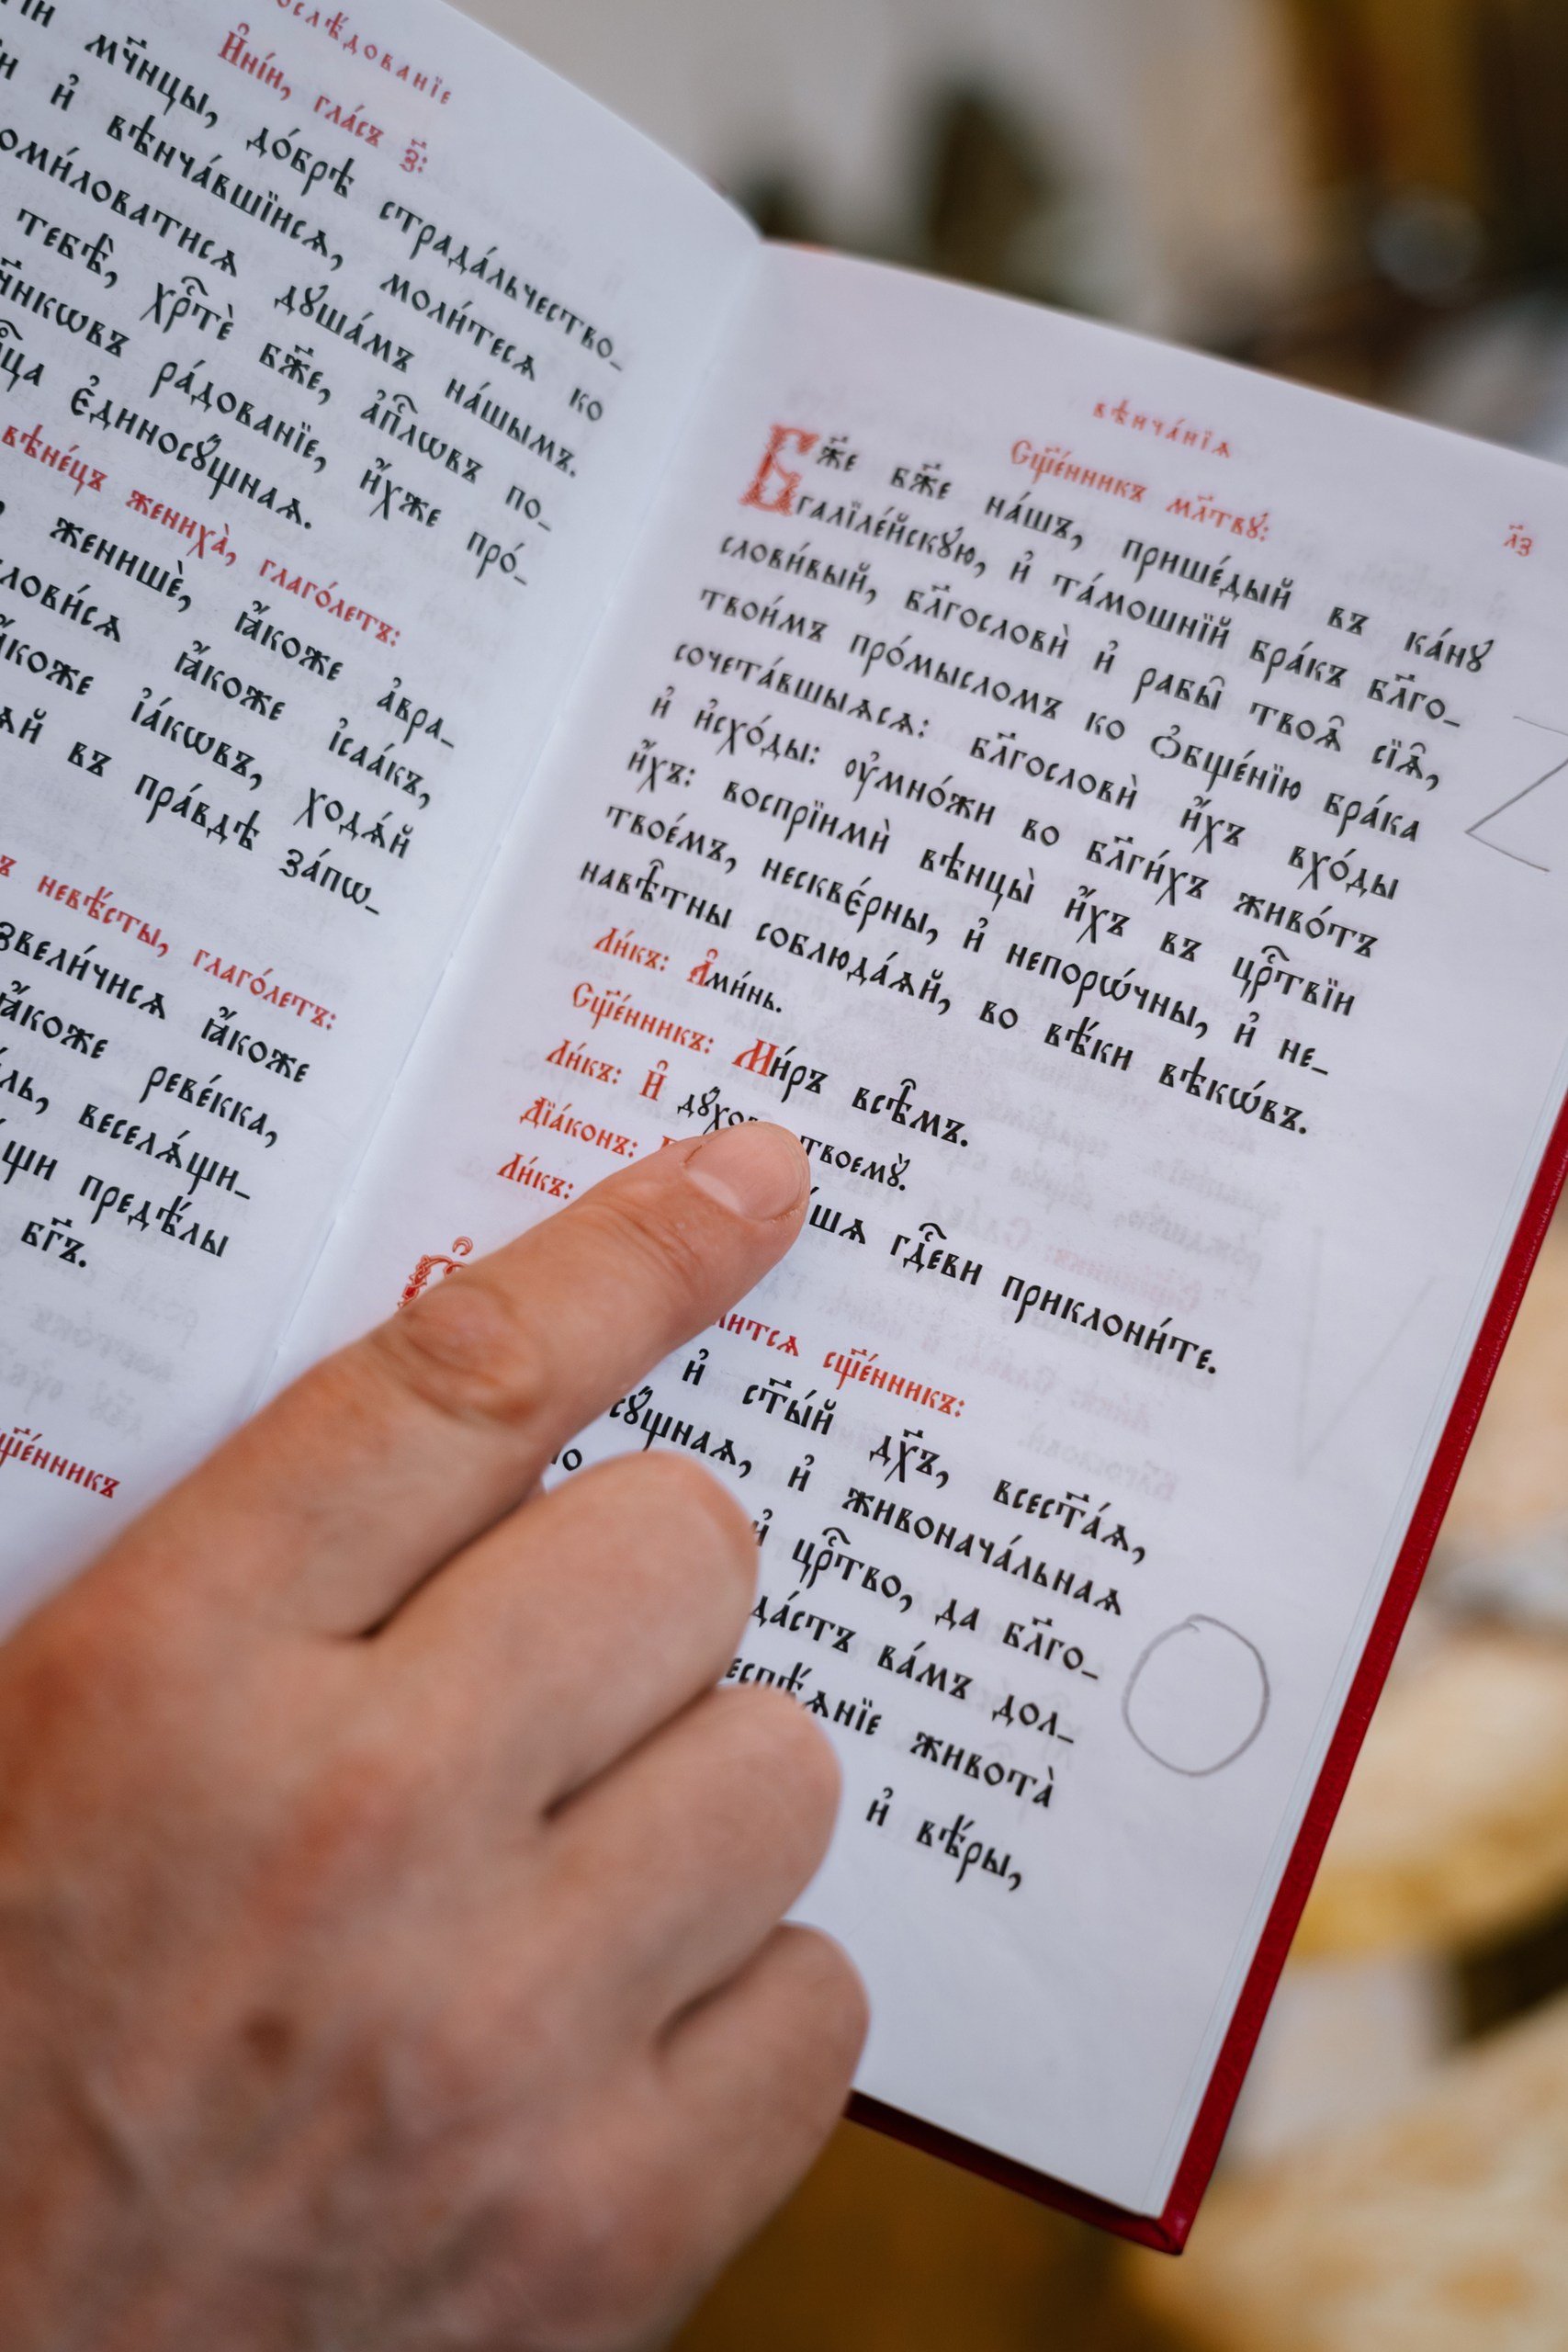 послѣ́дованїе
И҆ни́и, гла́съ з҃:
мч҃нцы, до́брѣ страда́льчество_
и҆ вѣнча́вшїися, моли́теся ко
поми́ловатися дꙋша́мъ на́шымъ.
тебѣ̀, хрⷭ҇тѐ бж҃е, а҆пⷭ҇лѡвъ по_
ра́дованїе, и҆́хже про́_
є҆диносꙋ́щная.
вѣне́цъ женихà, глаго́летъ:
женишѐ, ꙗ҆́коже а҆вра_
ꙗ҆́коже і҆саа́къ,
ꙗ҆́коже і҆а́кѡвъ, ходѧ́й
въ пра́вдѣ за́пѡ_
невѣ́сты, глаго́летъ:
возвели́чися ꙗ҆́коже
ꙗ҆́коже реве́кка,
веселѧ́щи_
предѣ́лы
бг҃ъ.
сщ҃е́нникъ
вѣнча́нїѧ
л҃з
Сщ҃е́нникъ мл҃твꙋ:
Бж҃е бж҃е на́шъ, прише́дый въ ка́нꙋ
галїле́йскꙋю, и҆ та́мошнїй бра́къ бл҃го_
слови́вый, бл҃гословѝ и҆ рабы̑ твоѧ̑ сїѧ̑,
твои́мъ про́мысломъ ко ѻ҆бще́нїю бра́ка
сочета́вшыѧсѧ: бл҃гословѝ и҆́хъ вхо́ды
и҆ и҆схо́ды: ᲂу҆мно́жи во бл҃ги́хъ живо́тъ
и҆́хъ: воспрїимѝ вѣнцы̀ и҆́хъ въ црⷭ҇твїи
твое́мъ, нескве́рны, и҆ непорѡ́чны, и҆ не_
навѣ̑тны соблюда́ѧй, во вѣ́ки вѣкѡ́въ.
Ли́къ: А҆ми́нь.
Сщ҃е́нникъ: Ми́ръ всѣ̑мъ.
Ли́къ: И҆ твоемꙋ̀.
Дїа́конъ: гдⷭ҇еви приклони́те.
Ли́къ:
сщ҃е́нникъ:
и҆ ст҃ы́й дх҃ъ, всест҃а́ѧ,
и҆ живонача́льнаѧ
и҆ црⷭ҇тво, да бл҃го_
ва́мъ дол_
животà
и҆ вѣ́ры,